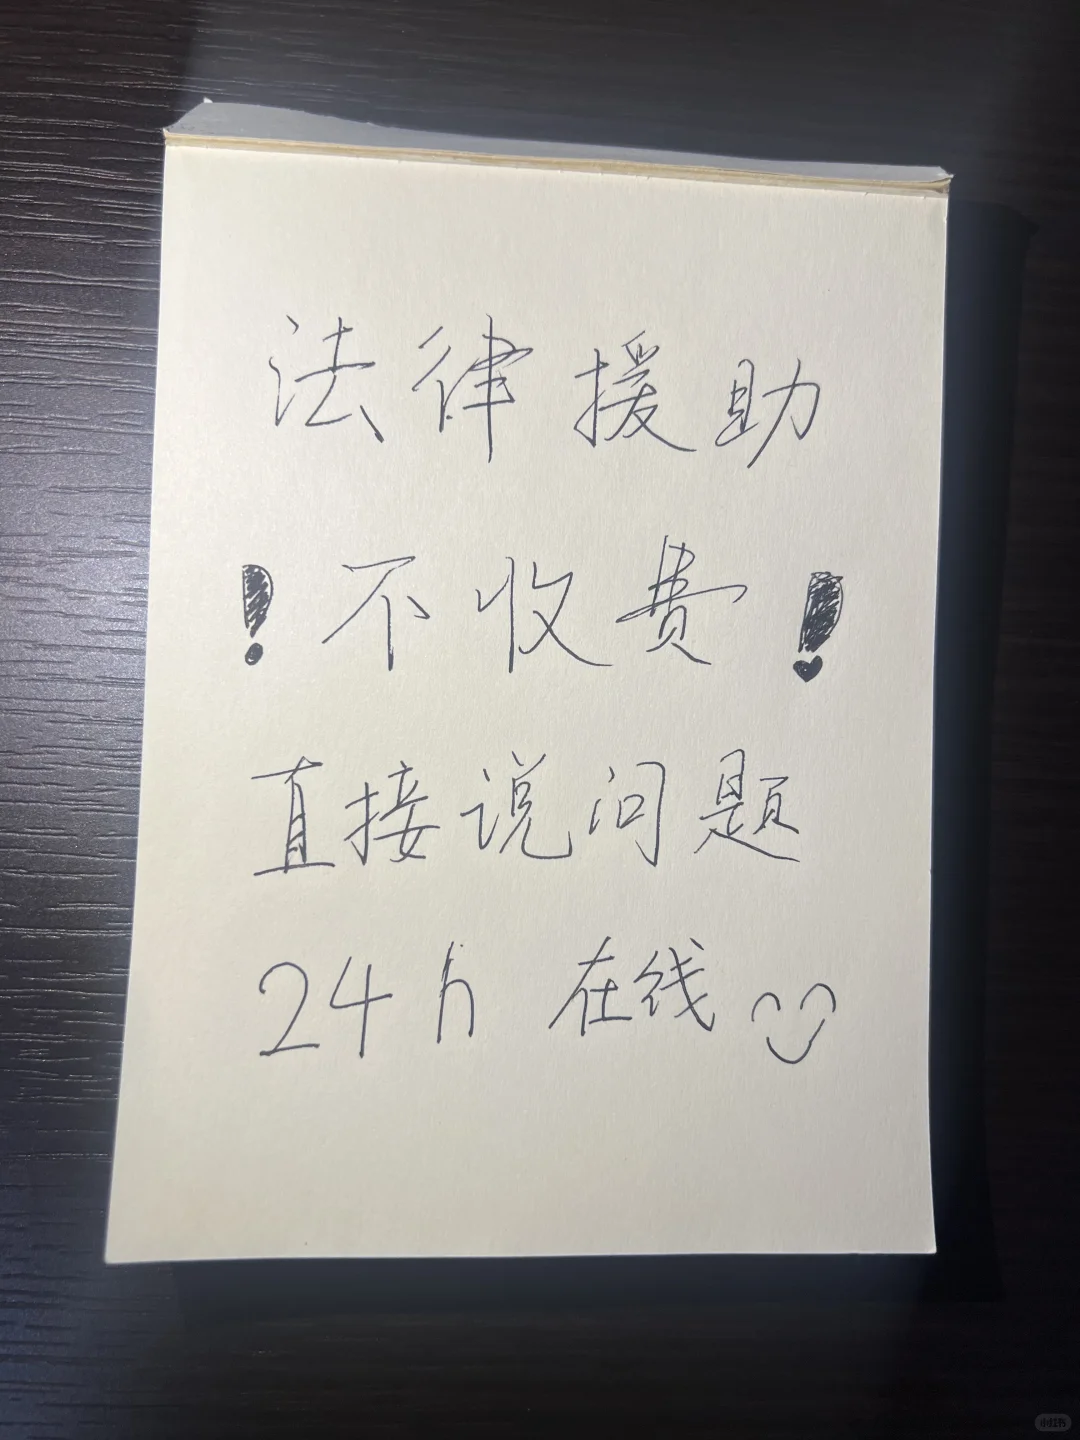 法律援助
！不收费！
直接说问题
24h 在线